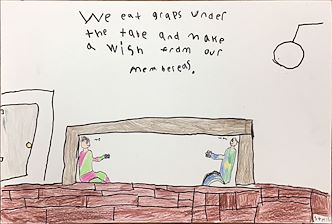 We eat graps under
the tabe and make
a wish from our
membereas.